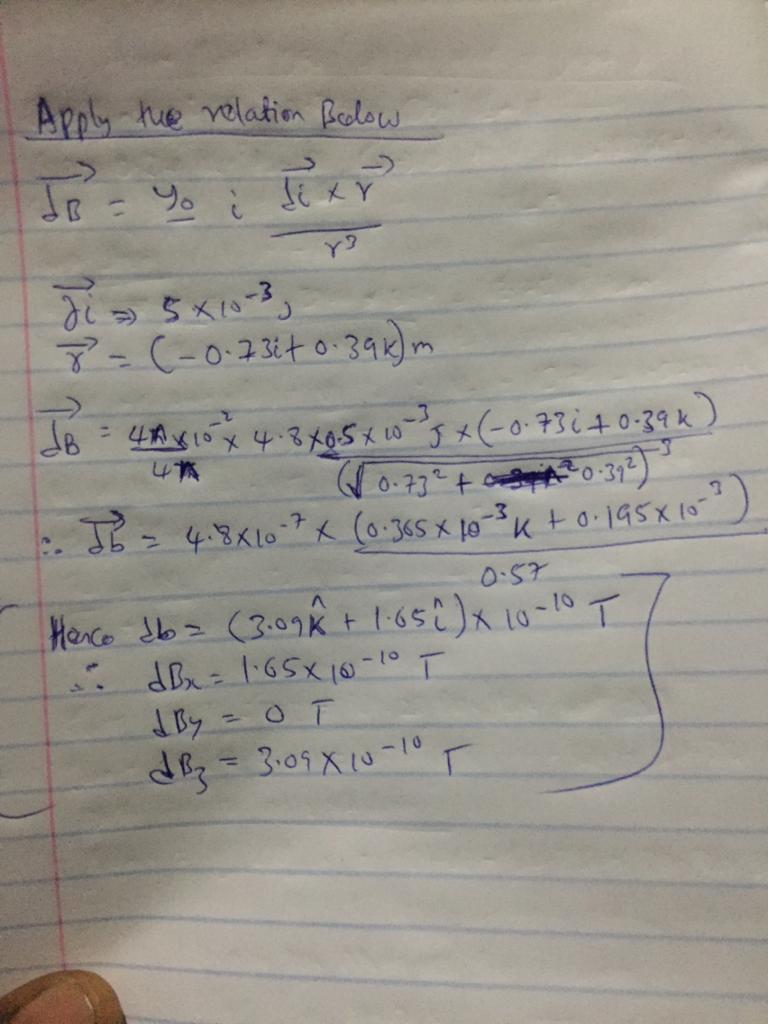 Apply the relation Below
dB = μ0 i di × r
r³
di ⇒ 5 × 10⁻³ j
r = (-0.73i + 0.39k) m
dB = 4π × 10⁻² × 4.8 × 0.5 × 10⁻³ j × (-0.73i + 0.39k)
4π (√0.73² + 0.39²)⁻³
∴ db = 4.8 × 10⁻⁷ × (0.365 × 10⁻³ k + 0.195 × 10⁻³)
0.57
Hence db = (3.09k̂ + 1.65î) × 10⁻¹⁰ T
∴ dBx = 1.65 × 10⁻¹⁰ T
dBy = 0 T
dBz = 3.09 × 10⁻¹⁰ T